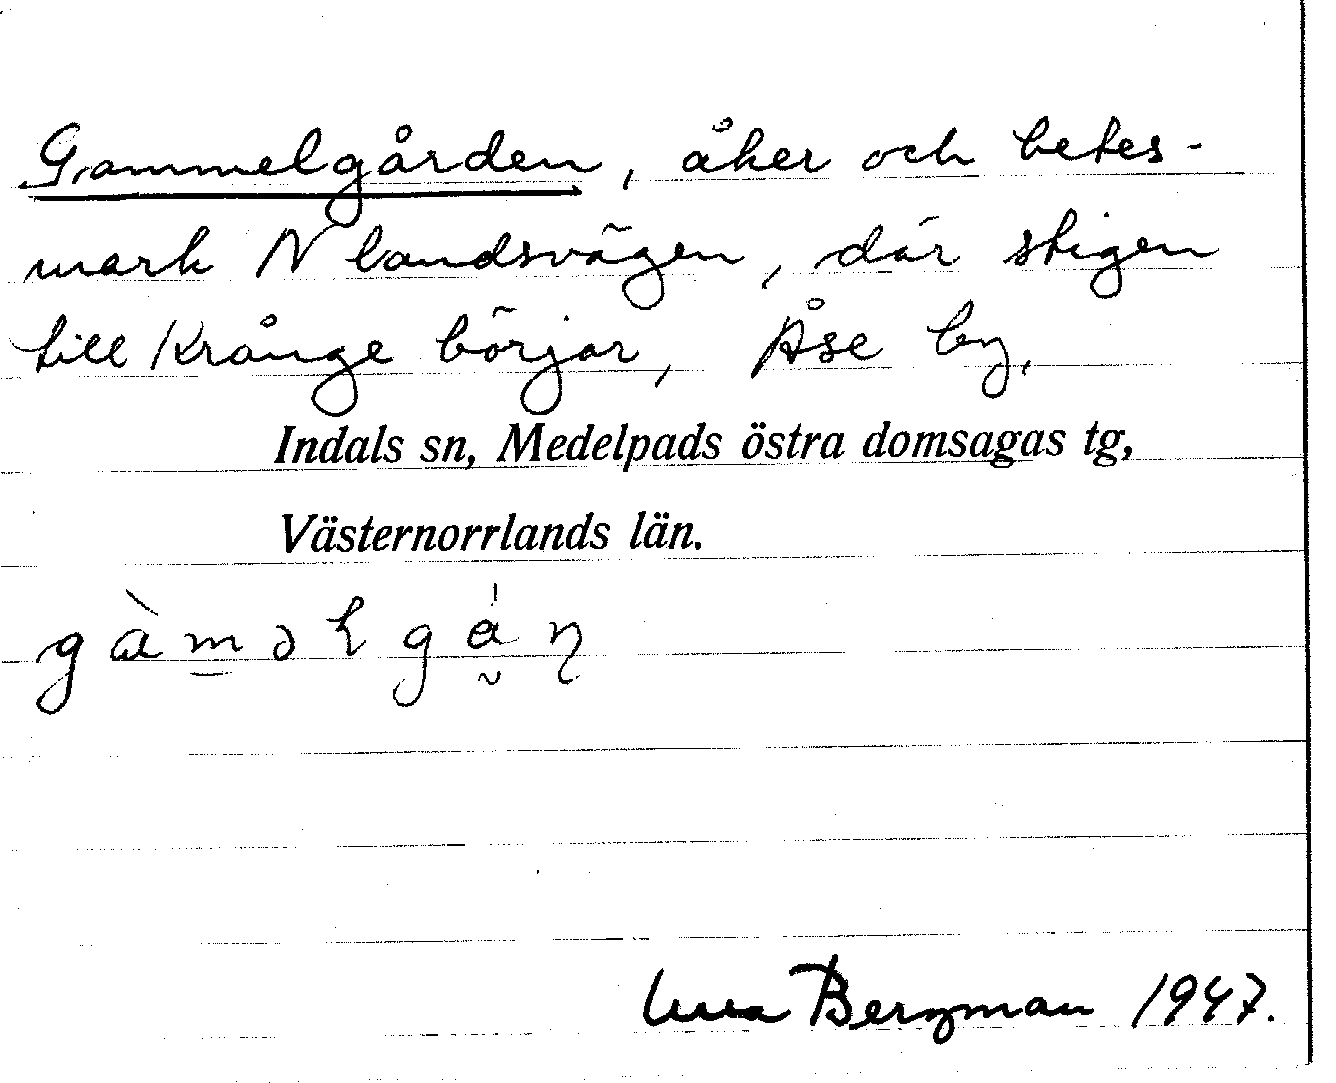 Gammelgården, åker och betes-
mark N landsvägen, där stigen
till Krånge börjar, Åse by,
Indals sn, Medelpads östra domsagas tg,
Västernorrlands län.
gàməlgán
Bergman 1947.